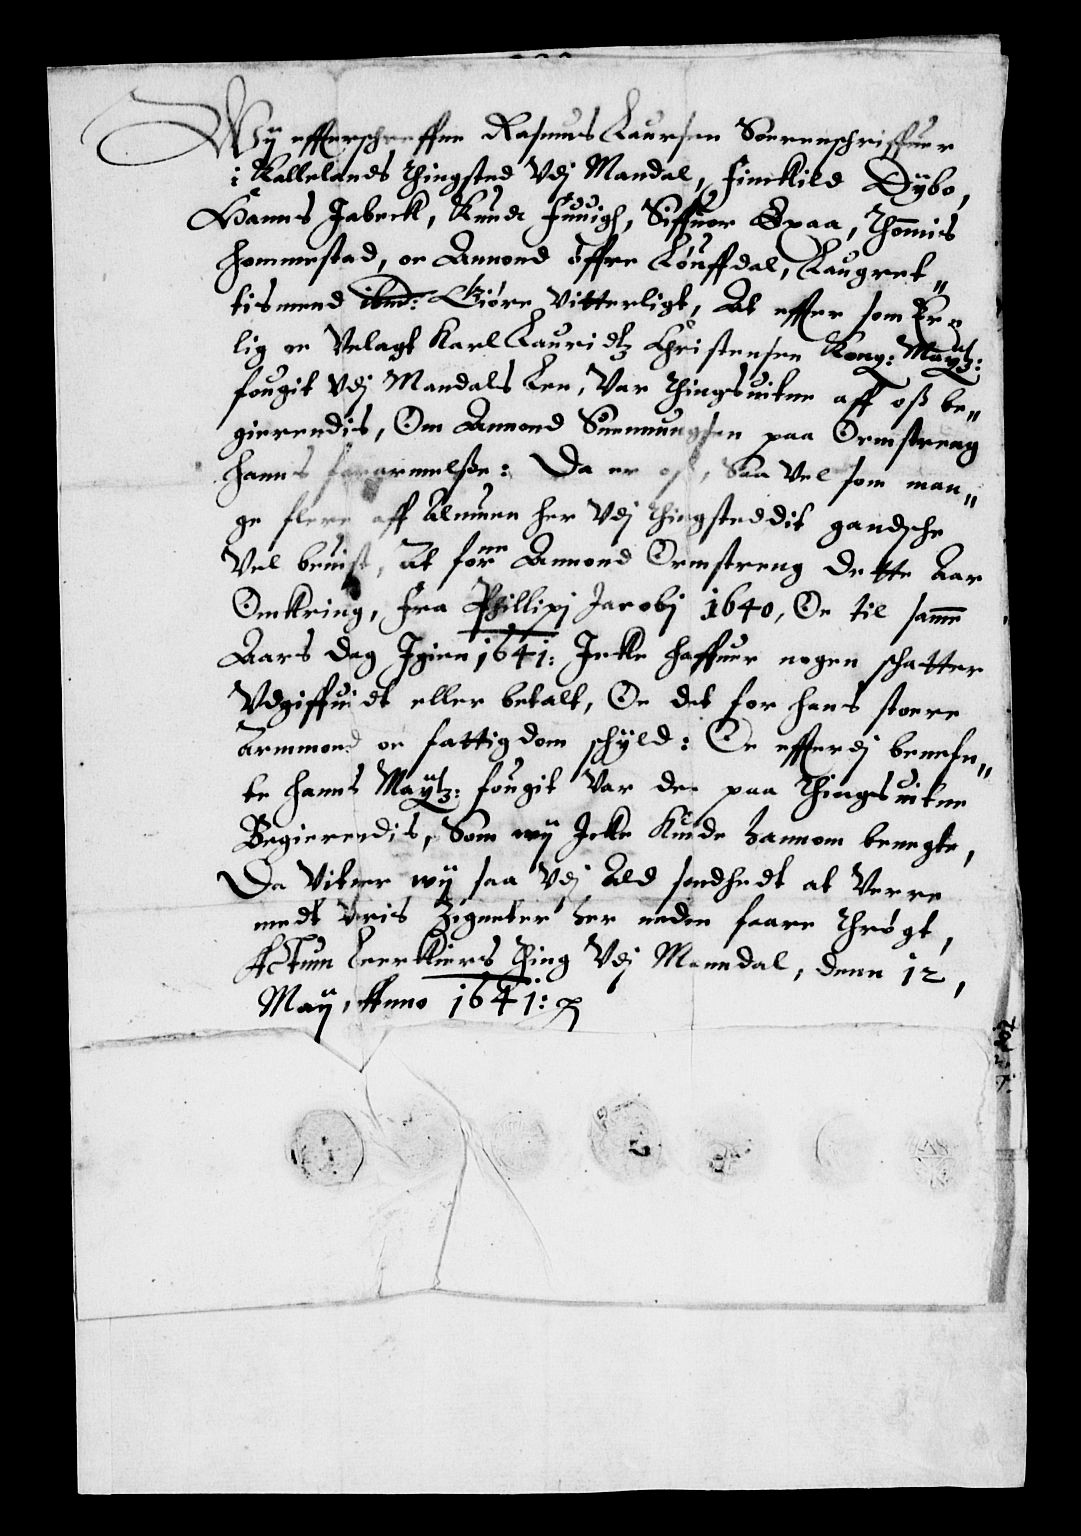 Wÿ effterschreffne Rasmus Laursen Soerenschriffuer
i Kallelands Thingsted Vdj Mandal, Finkild Dÿbo,
Hanns Jabeck, Knudt Fuuigh, Siffuer Spaa, Thommis
Hommestad, oc Amond öffre Löuffdal, Laugret„
tismend ibnd: Giöre Vitterligt, At effter som Er„
lig oc Velagt Karl Lauridtz Christensen Kong: Maytz:
fougit Vdj Mandals Len, Var Thingsuitne aff oss be„
gierendis, Om Amond Suennungsen paa Ormstreng
hanns forarmelsse: Da er oss, Saa Vel som man„
ge flere aff Almuen her Vdj Thingsteddit gandsche
Vel beuist, At forne Amond Ormstreng dette Aar
Omkring, fra Phillipj Jacobj 1640, Oc til samme
Aars dag Igien 1641: Icke haffuer nogen schatter
Vdgiffuidt eller betalt, Oc det for hans stoere
Armmod oc fattigdom schÿld: Oc effterdj benefn„
te hanns Maÿtz: fougit Var der paa Thingsuitne
Begierendis, Som wÿ Icke Kunde hannom benegte,
Da Vitner wÿ saa Vdj Ald sandhedt at Verre
medt Voris Zigneter her neden faare Thrögt,
Actum Leerkiers Thing Vdj Manndal, denn 12,
Maÿ, Anno 1641: